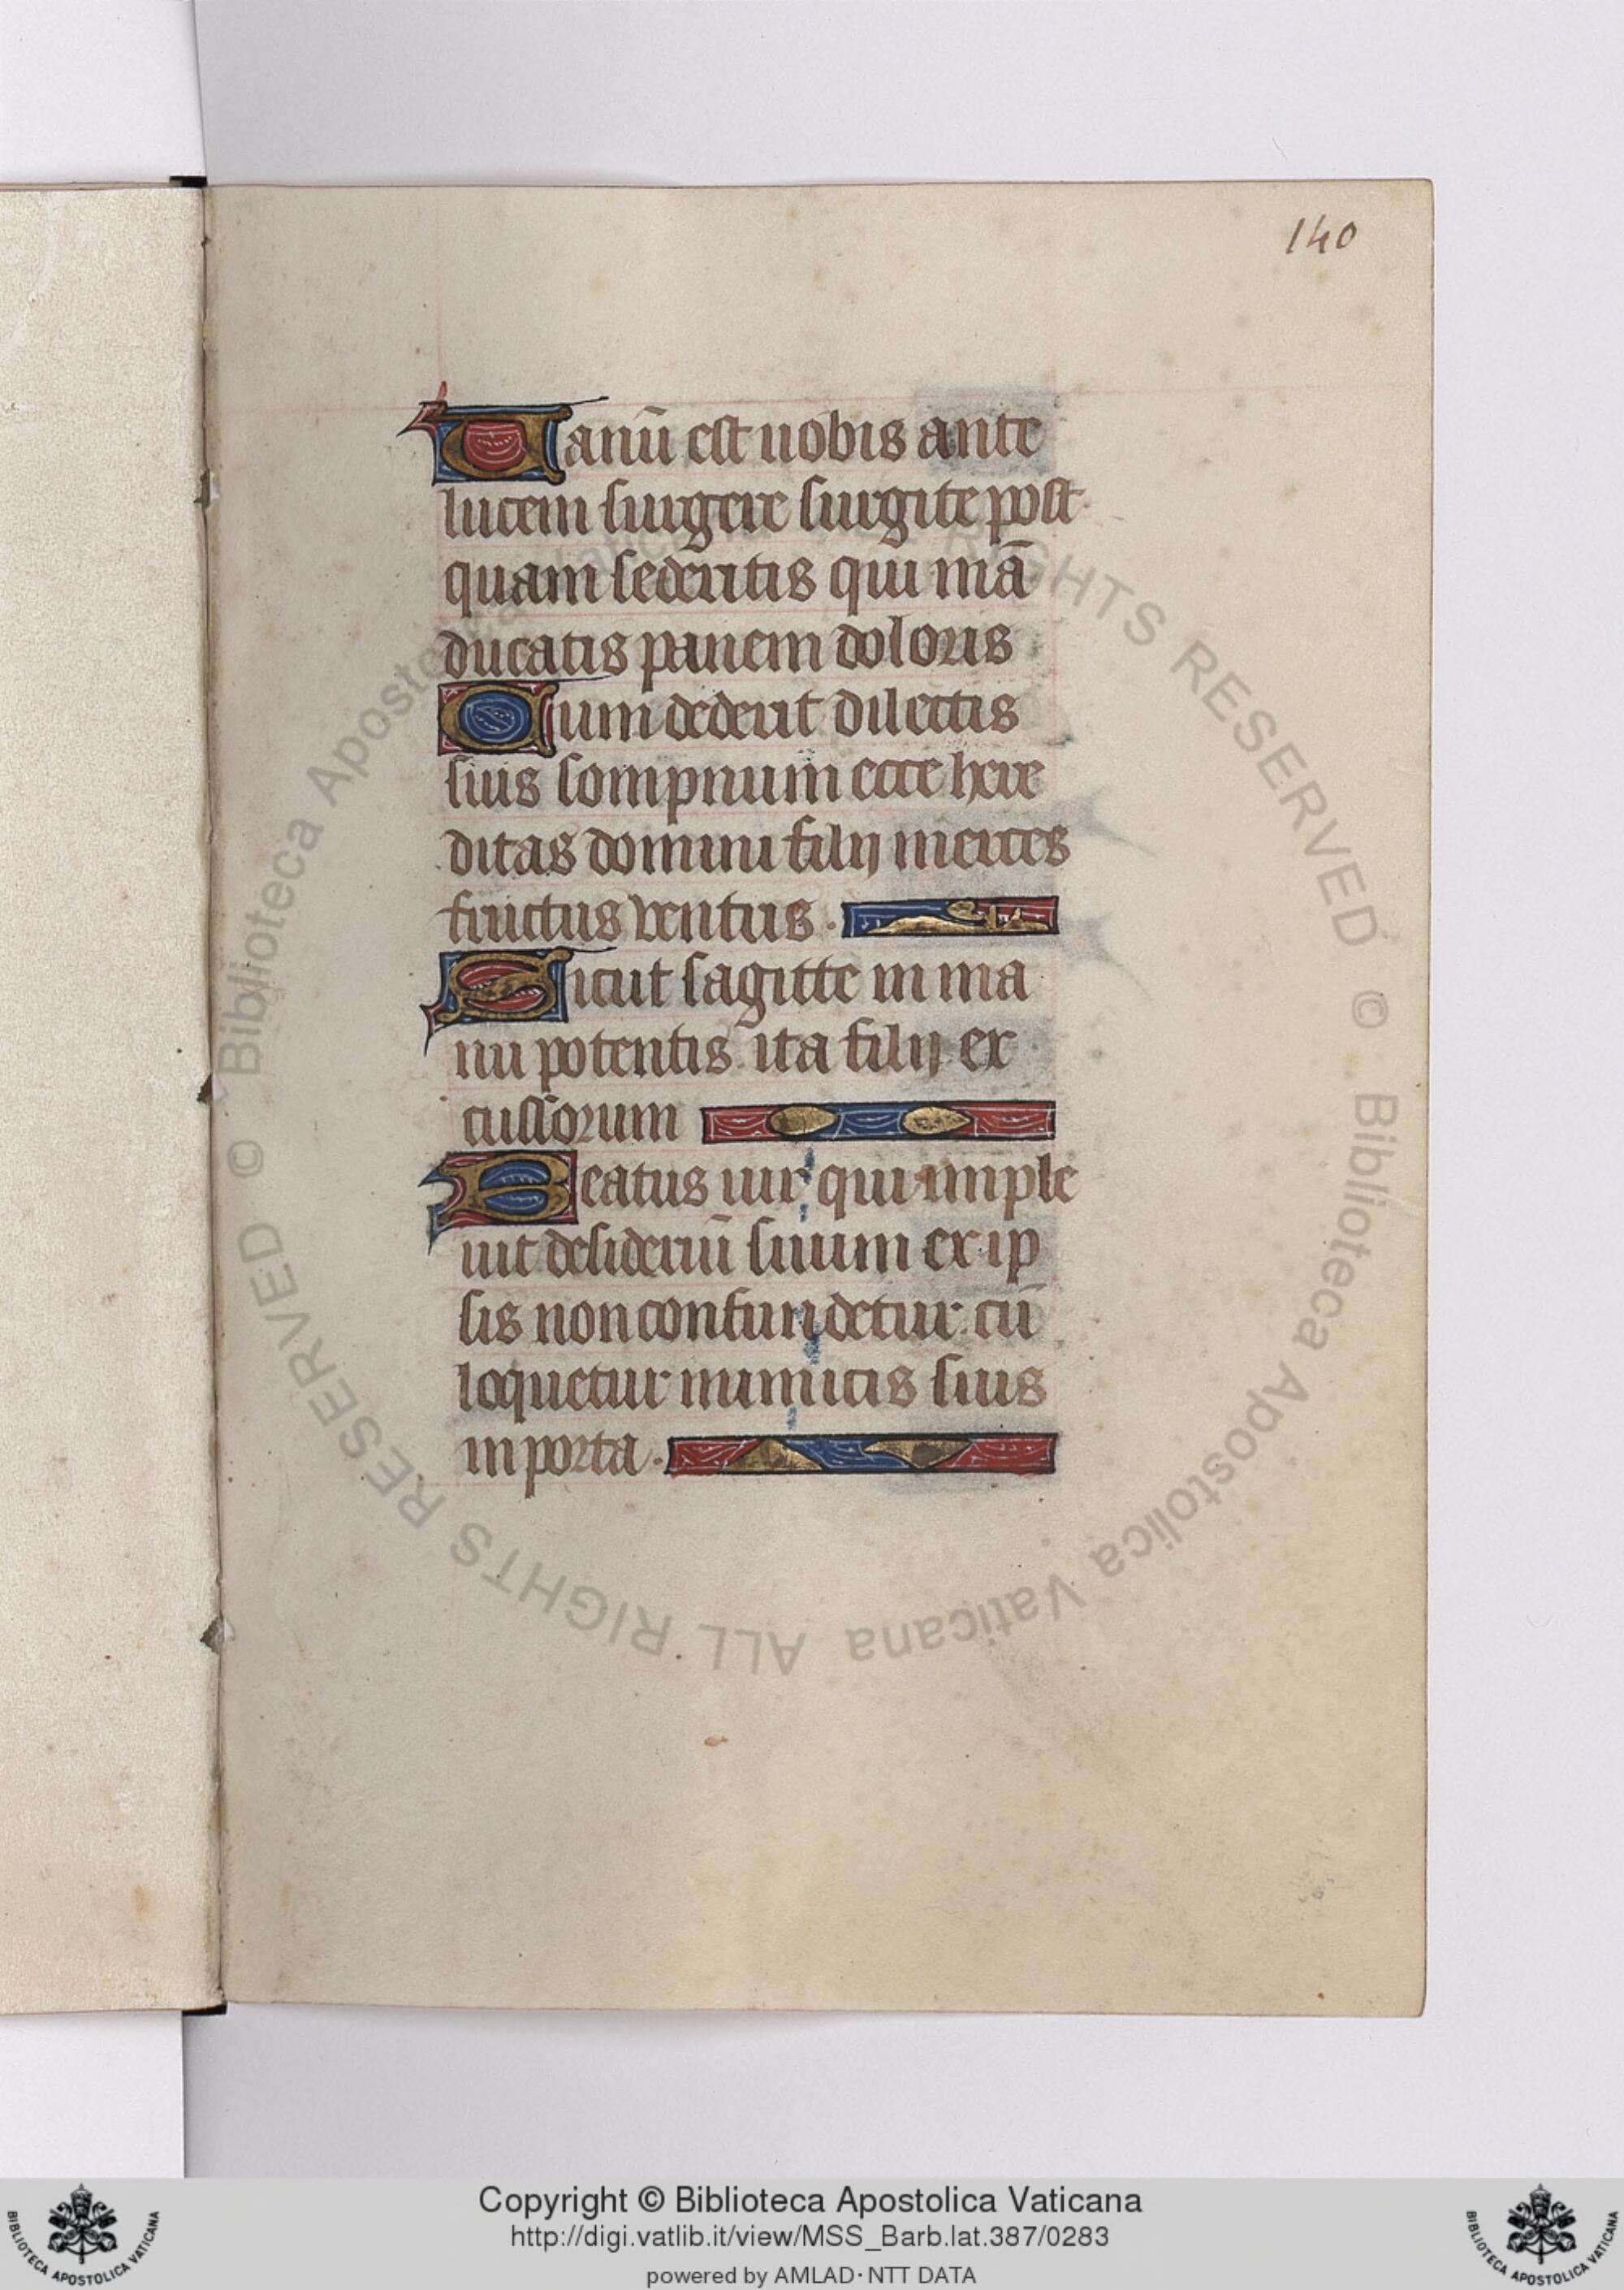 140
Vanū est uobis ante
lucem surgere surgite post
quam sederitis qui mā
ducatis panem doloris
Cum dederit dilectis
suis sompnum ecce here
ditas domini filij merces
fructus ventris.
Sicut sagitte in ma
nu potentis ita filij ex
cussorum
Beatus uir qui imple
uit desideriū suum ex ip
sis non confundetur cū
loquetur inimicis suis
in porta.
© Biblioteca Apostolica Vaticana ALL RIGHTS RESERVED © Biblioteca Apostolica Vaticana ALL RIGHTS RESERVED
Copyright © Biblioteca Apostolica Vaticana
http://digi.vatlib.it/view/MSS_Barb.lat.387/0283
powered by AMLAD·NTT DATA
BIBLIOTECA APOSTOLICA VATICANA
BIBLIOTECA APOSTOLICA VATICANA